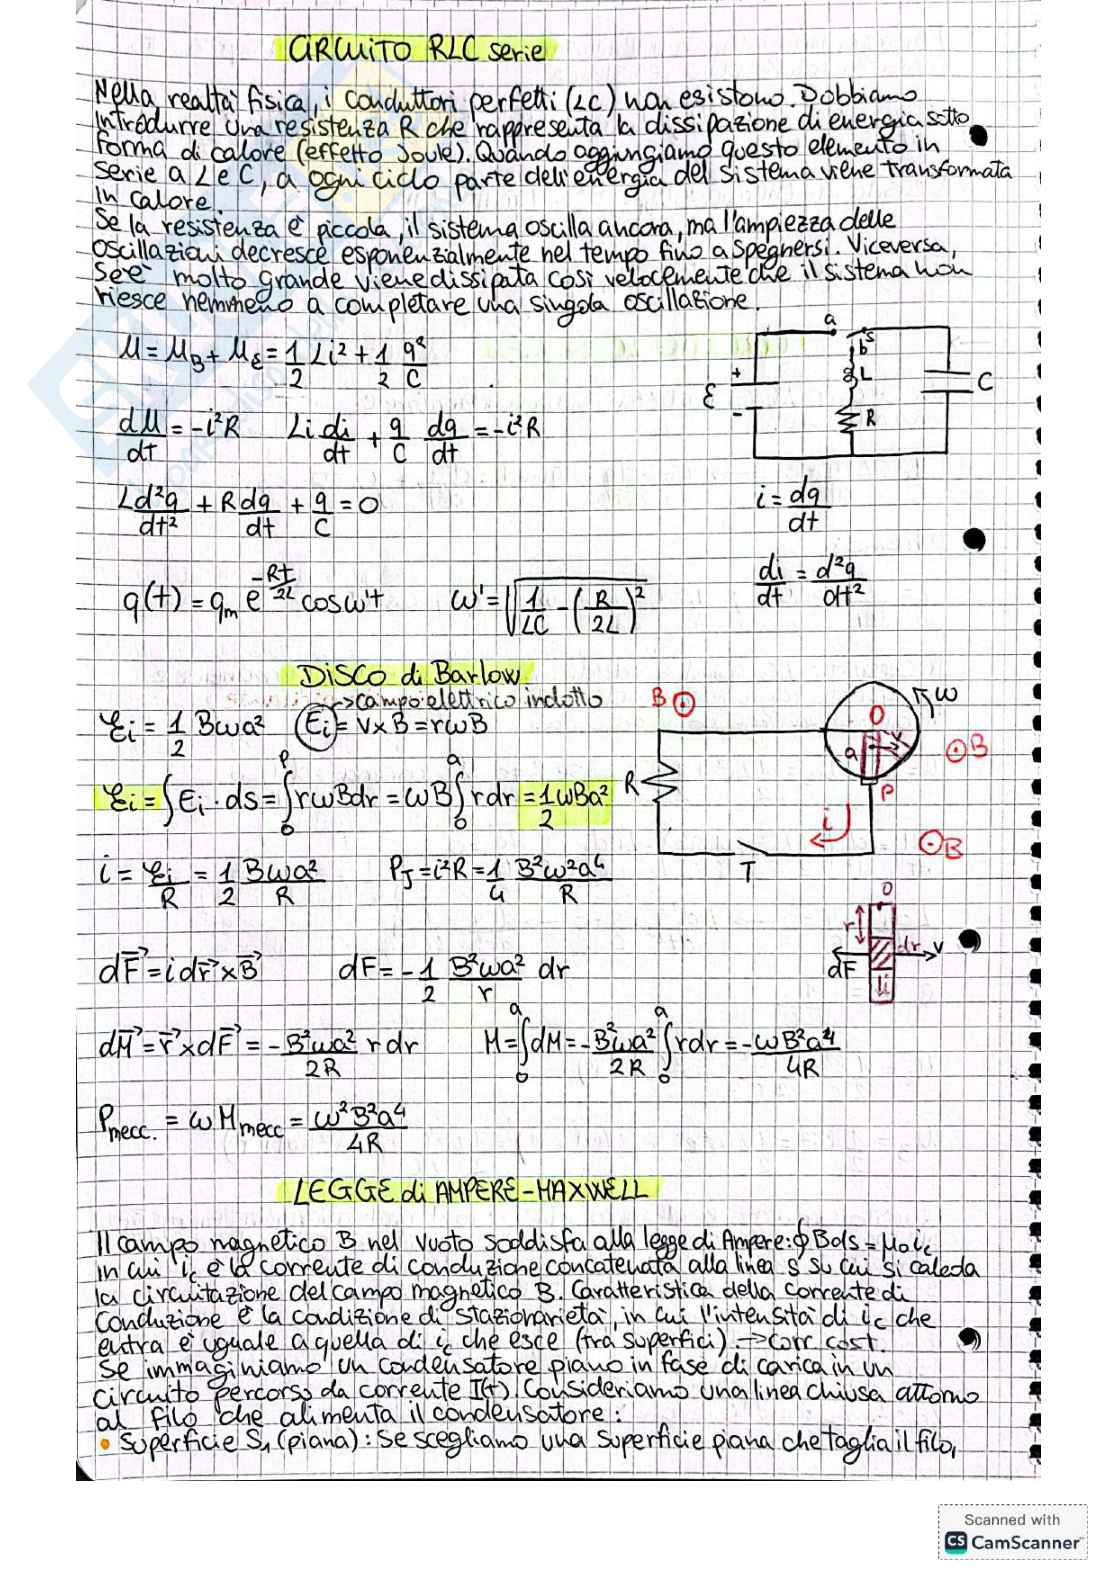 CIRCUITO RLC serie
Nella realtà fisica, i conduttori perfetti (LC) non esistono. Dobbiamo
introdurre una resistenza R che rappresenta la dissipazione di energia sotto
forma di calore (effetto Joule). Quando aggiungiamo questo elemento in
serie a L e C, a ogni ciclo parte dell'energia del sistema viene transformata
in calore.
Se la resistenza è piccola, il sistema oscilla ancora, ma l'ampiezza delle
oscillazioni decresce esponenzialmente nel tempo fino a spegnersi. Viceversa,
se è molto grande viene dissipata così velocemente che il sistema non
riesce nemmeno a completare una singola oscillazione.
a
s
b
L
R
C
+
-
ℰ
U = U_B + U_ε = 1/2 Li² + 1/2 q²/C
dU/dt = -i²R    Li di/dt + q/C dq/dt = -i²R
L d²q/dt² + R dq/dt + q/C = 0    i = dq/dt
q(t) = q_m e^(-Rt/2L) cos ω't    ω' = √(1/LC - (R/2L)²)    di/dt = d²q/dt²
DISCO di Barlow
→ campo elettrico indotto
ℰi = 1/2 Bωa²    Ei = v×B = rωB
ℰi = ∫Ei · ds = ∫₀ᴾ rωBdr = ωB ∫₀ᵃ rdr = 1/2 ωBa²
B ⊙
ω
O
a
v
P
⊙ B
R
i
T
⊙ B
i = ℰi/R = 1/2 Bωa²/R    P_J = i²R = 1/4 B²ω²a⁴/R
O
r
dr
v
dF
i
dF⃗ = i dr⃗ × B⃗    dF = -1/2 B²ωa²/r dr
dM⃗ = r⃗ × dF⃗ = -B²ωa²/2R r dr    M = ∫₀ᵃ dM = -B²ωa²/2R ∫₀ᵃ rdr = -ωB²a⁴/4R
P_mecc. = ωM_mecc = ω²B²a⁴/4R
LEGGE di AMPERE-MAXWELL
Il campo magnetico B nel vuoto soddisfa alla legge di Ampere: ∮ B ds = μ₀ i_c
in cui i_c è la corrente di conduzione concatenata alla linea s su cui si calcola
la circuitazione del campo magnetico B. Caratteristica della corrente di
conduzione è la condizione di stazionarietà, in cui l'intensità di i_c che
entra è uguale a quella di i_c che esce (tra superfici). → corr. cost.
Se immaginiamo un condensatore piano in fase di carica in un
circuito percorso da corrente I(t). Consideriamo una linea chiusa attorno
al filo che alimenta il condensatore:
• Superficie S₁ (piana): Se scegliamo una superficie piana che taglia il filo,
Scanned with
CS CamScanner